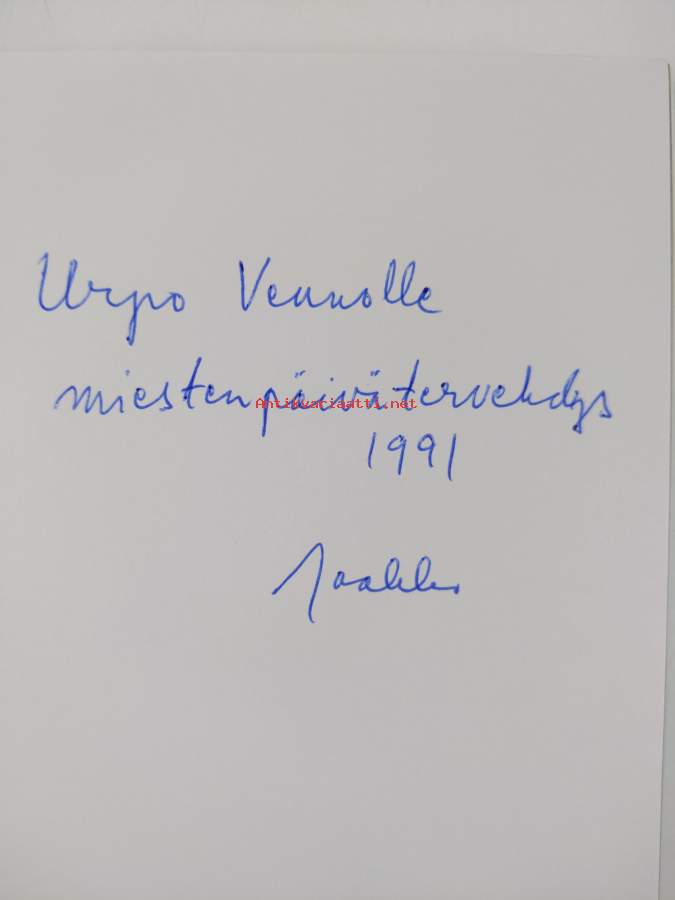 Urpo Vennolle
miestenpäivätervehdys
Antikvariaatti.net
1991
Jaakko